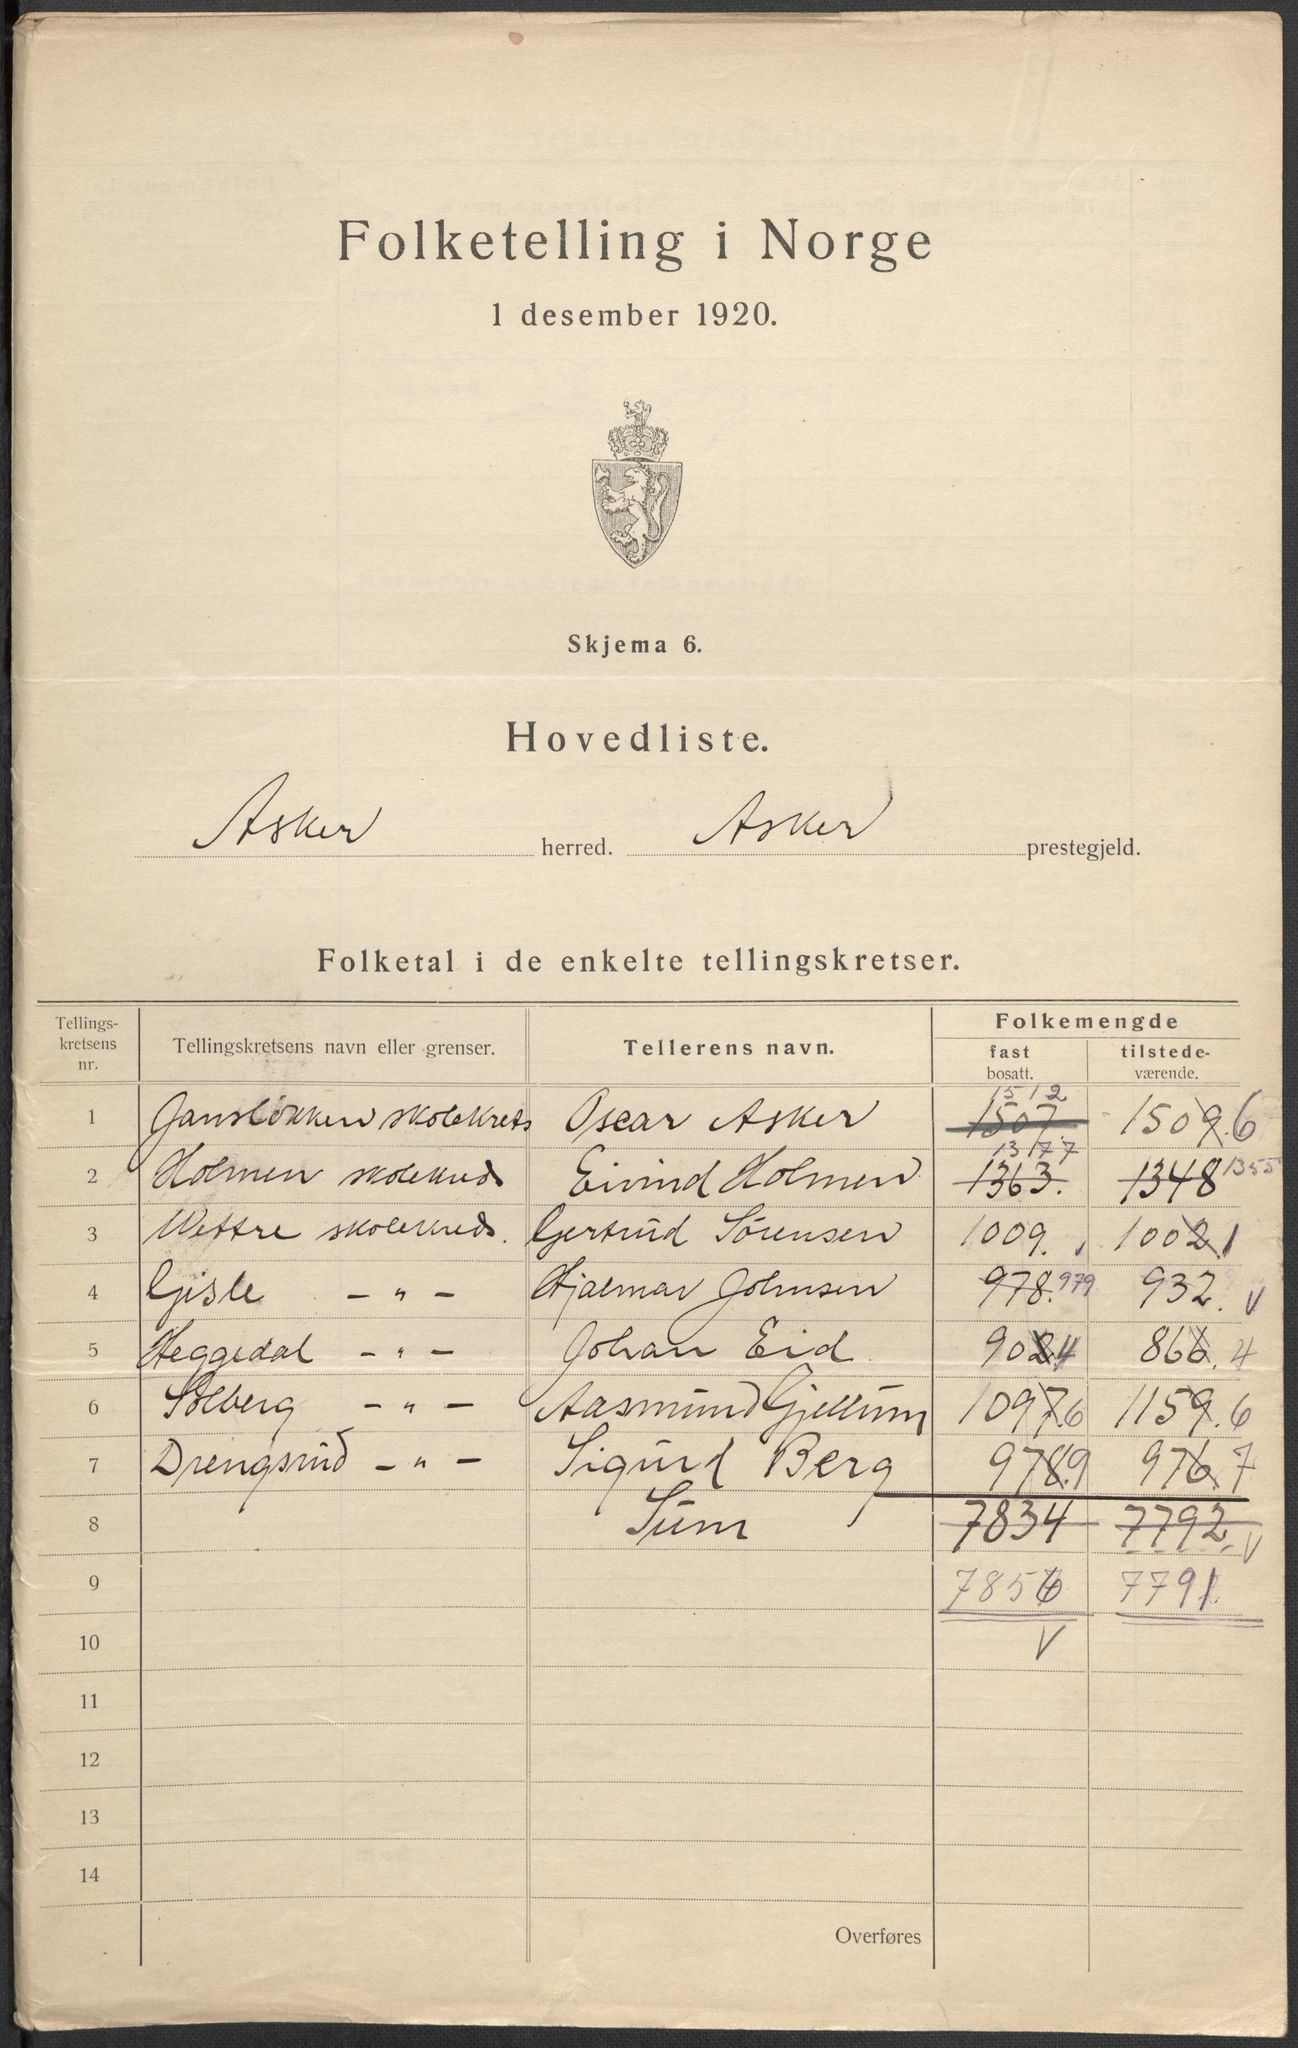 Folketelling i Norge
1 desember 1920.
Skjema 6.
Hovedliste.
Asker herred. Asker prestegjeld.
Folketal i de enkelte tellingskretser.
Tellings-kretsens nr. Tellingskretsens navn eller grenser. Tellerens navn. Folkemengde
fast bosatt. tilstede-værende.
1512
1 Jansløkken skolekrets Oscar Asker 1507 1509. 6
1377
2 Holmen skolekreds Eivind Holmen 1363. 1348 1355
3 Wettre skolekreds. Gertrud Sørensen 1009. 1002 1
4 Gisle - " - Hjalmar Johnsen 978. 979 932. v
5 Heggedal - " - Johan Eid 902 4 866. 4
6 Solberg - " - Aasmund Gjellum 1097 6 1159. 6
7 Drengsrud - " - Sigurd Berg 978 9 976. 7
8 Sum 7834 7792 v
9 7856 7791
10 v
11
12
13
14
Overføres